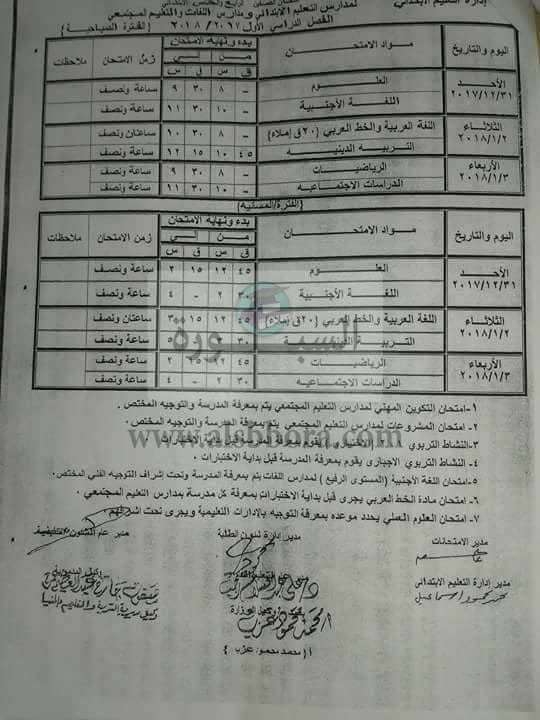 إدارة التعليم الابتدائي
لمدارس التعليم الابتدائي ومدارس اللغات والتعليم المجتمعي
الفصل الدراسي الأول ٢٠١٧ / ٢٠١٨ ( الفترة الصباحية )
اليوم والتاريخ مواد الامتحان بدء ونهاية الامتحان زمن الامتحان ملاحظات
من إلى
س ق س ق
الأحد ٢٠١٧/١٢/٣١ العلوم ٨ - ٩ ٣٠ ساعة ونصف
اللغة الأجنبية ١٠ - ١١ ٣٠ ساعة ونصف
الثلاثاء ٢٠١٨/١/٢ اللغة العربية والخط العربي (٢٠ق إملاء) ٨ - ١٠ ٣٠ ساعتان ونصف
التربيه الدينيه ١٠ ٤٥ ١٢ ١٥ ساعة ونصف
الأربعاء ٢٠١٨/١/٣ الرياضيات ٨ - ٩ ٣٠ ساعة ونصف
الدراسات الاجتماعيه ١٠ - ١١ ٣٠ ساعة ونصف
(الفترة المسائيه)
اليوم والتاريخ مواد الامتحان بدء ونهايه الامتحان زمن الامتحان ملاحظات
من إلى
س ق س ق
الأحد ٢٠١٧/١٢/٣١ العلوم ١٢ ٤٥ ٢ ١٥ ساعة ونصف
اللغة الأجنبية ٢ ٣٠ ٤ - ساعة ونصف
الثلاثاء ٢٠١٨/١/٢ اللغة العربية والخط العربي (٢٠ق إملاء) ١٢ ٤٥ ٣ ١٥ ساعتان ونصف
التربية الدينية ٣ ٣٠ ٥ ساعة ونصف
الأربعاء ٢٠١٨/١/٣ الرياضيات ١٢ ٤٥ ٢ ساعة ونصف
الدراسات الاجتماعيه ٢ ٣٠ ٤ - ساعة ونصف
السبورة
www.alsbbora.com
١- امتحان التكوين المهني لمدارس التعليم المجتمعي يتم بمعرفة المدرسة والتوجيه المختص .
٢- امتحان المشروعات لمدارس التعليم المجتمعي يتم بمعرفة المدرسة والتوجيه المختص .
٣- النشاط التربوي الاختيارى يقوم بمعرفة المدرسة قبل بداية الاختبارات .
٤- النشاط التربوي الاجبارى يقوم بمعرفة المدرسة قبل بداية الاختبارات .
٥- امتحان اللغة الأجنبية (المستوى الرفيع ) لمدارس اللغات يتم بمعرفة المدرسة وتحت إشراف التوجيه الفني المختص.
٦- امتحان مادة الخط العربي يجرى قبل بداية الاختبارات بمعرفة كل مدرسة بمدارس التعليم المجتمعي .
٧- امتحان العلوم العملي يحدد موعده بمعرفة التوجيه بالادارات التعليمية ويجرى تحت اشرافهم .
مدير الامتحانات مدير إدارة شئون الطلبة مدير عام الشئون التنفيذية
مدير إدارة التعليم الابتدائي
وكيل المديرية
وكيل الوزارة
وكيل مديرية التربية والتعليم بالمنيا
أ/ محمد محمود عزب
( أ / محمد محمود عزب )